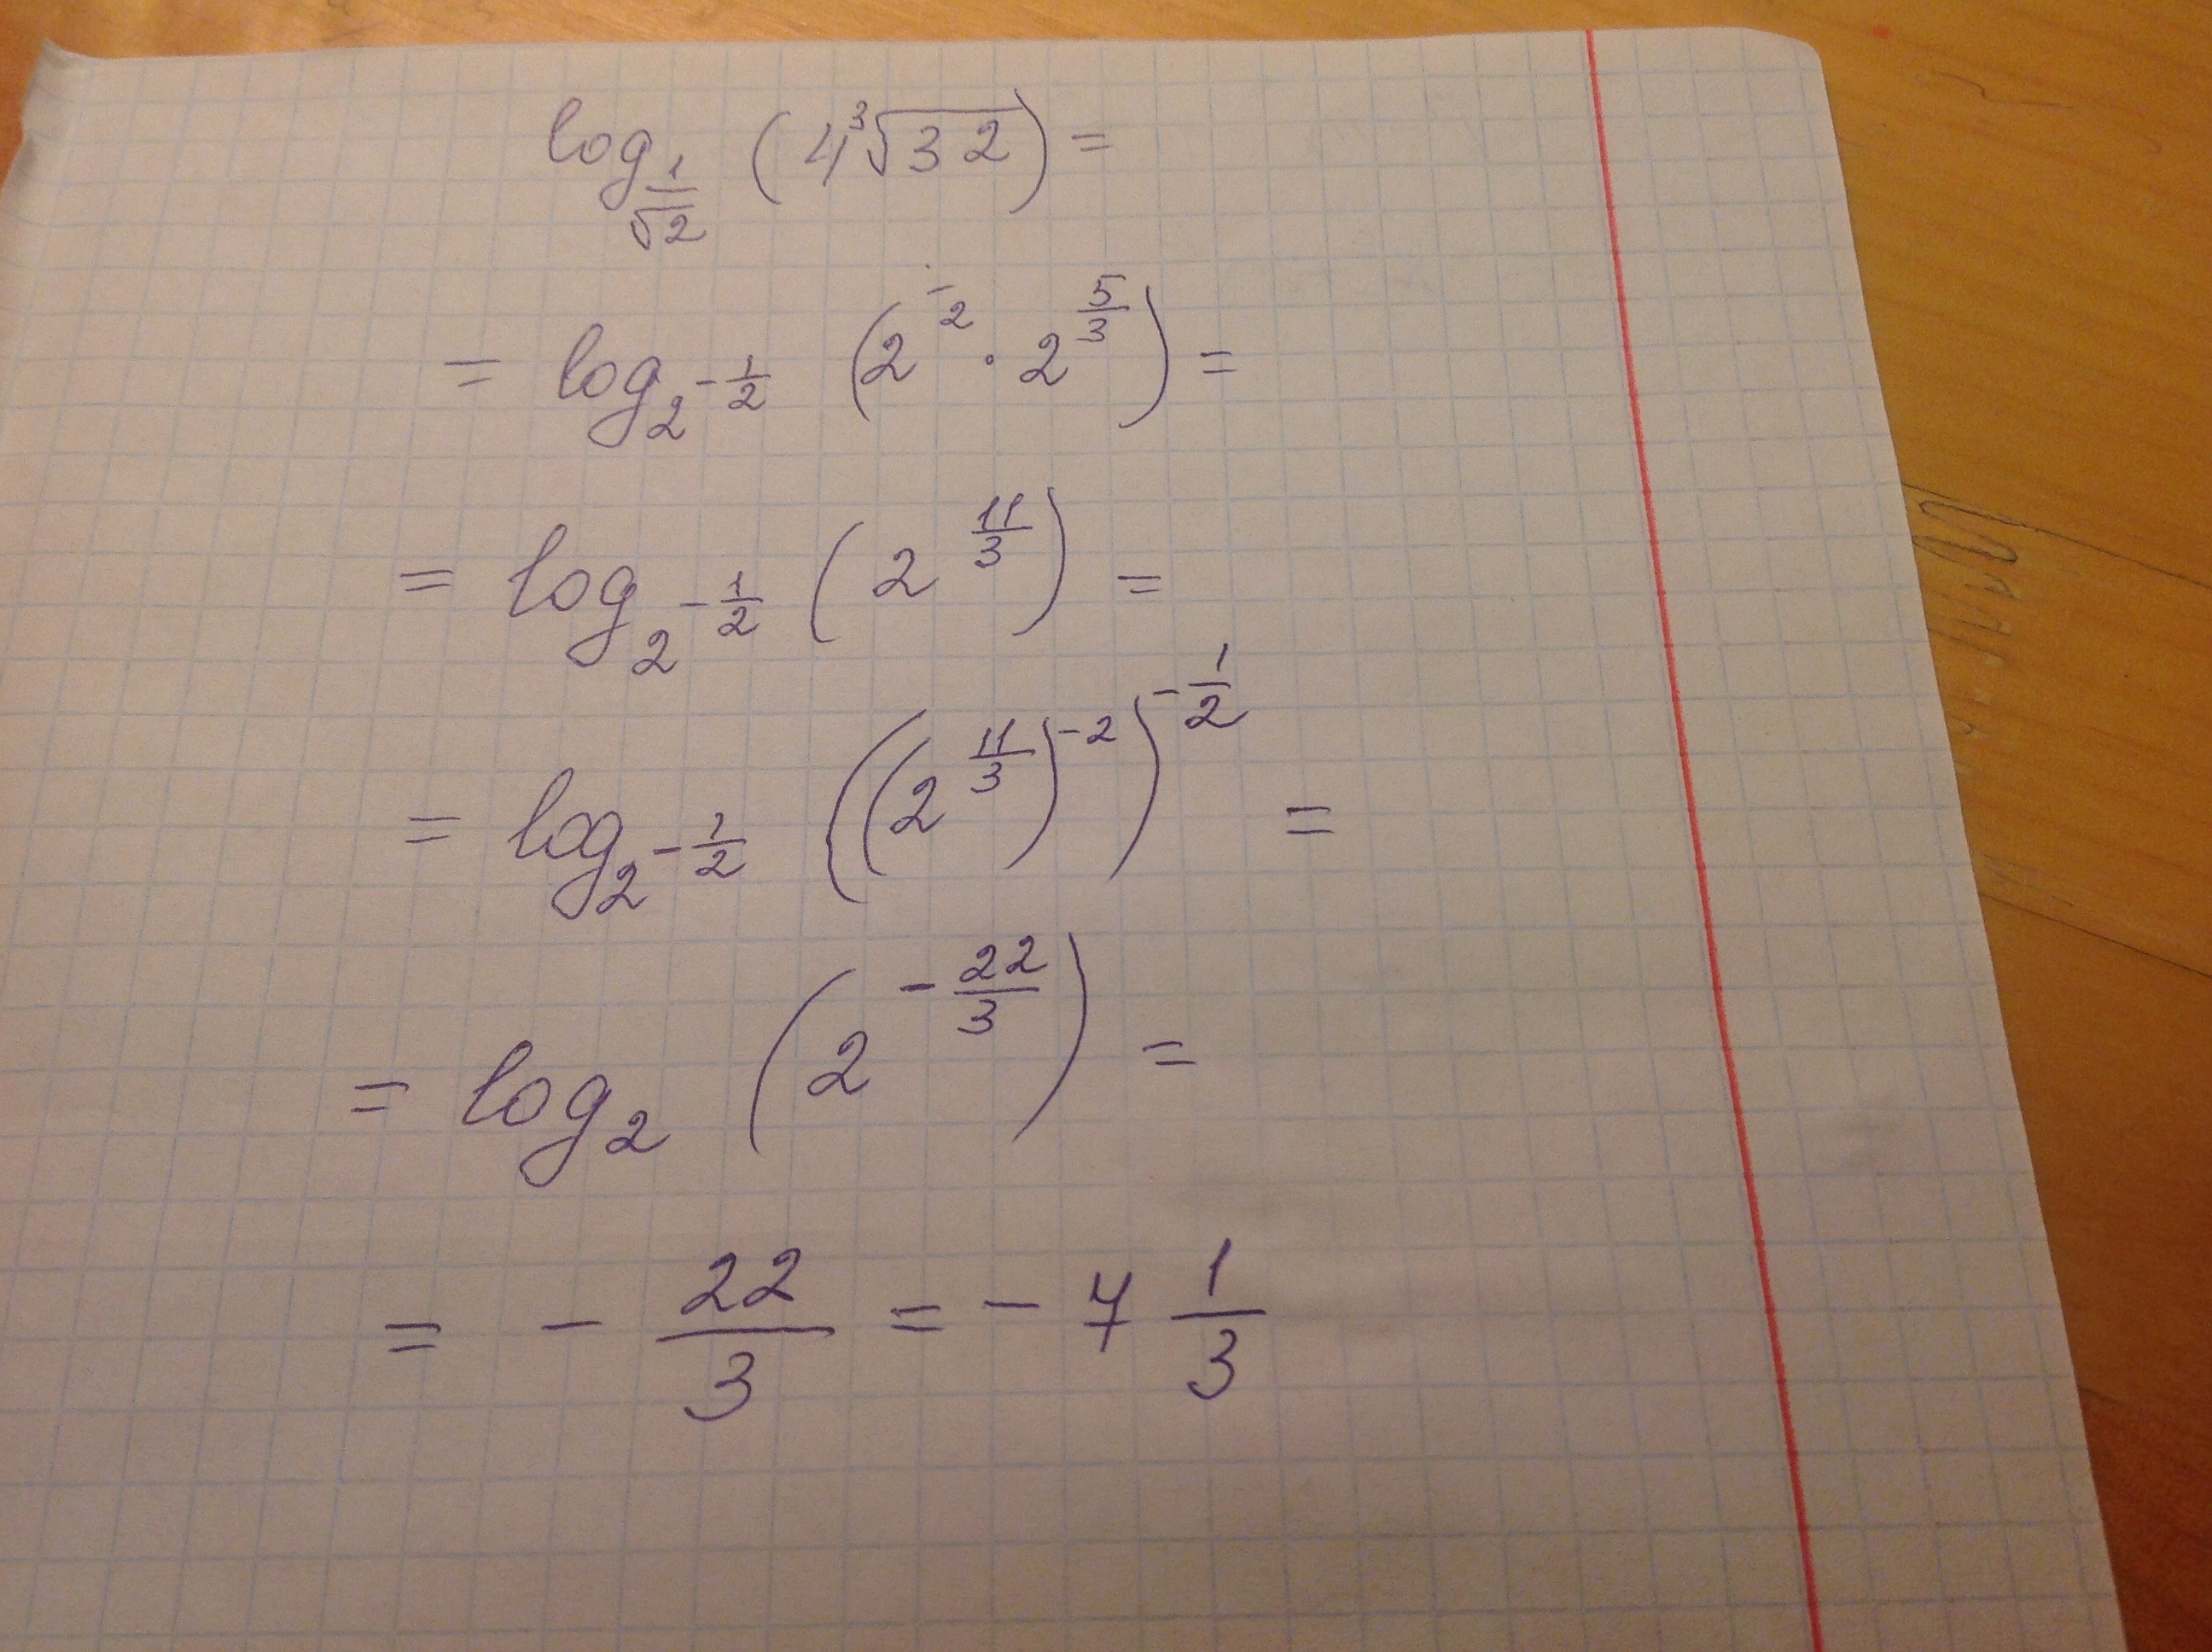 log_{\frac{1}{\sqrt{2}}} (4\sqrt[3]{32}) =
= log_{2^{-\frac{1}{2}}} (2^{-2} · 2^{\frac{5}{3}}) =
= log_{2^{-\frac{1}{2}}} (2^{\frac{11}{3}}) =
= log_{2^{-\frac{1}{2}}} ((2^{\frac{11}{3}})^{-2})^{-\frac{1}{2}} =
= log_2 (2^{-\frac{22}{3}}) =
= -\frac{22}{3} = -7\frac{1}{3}